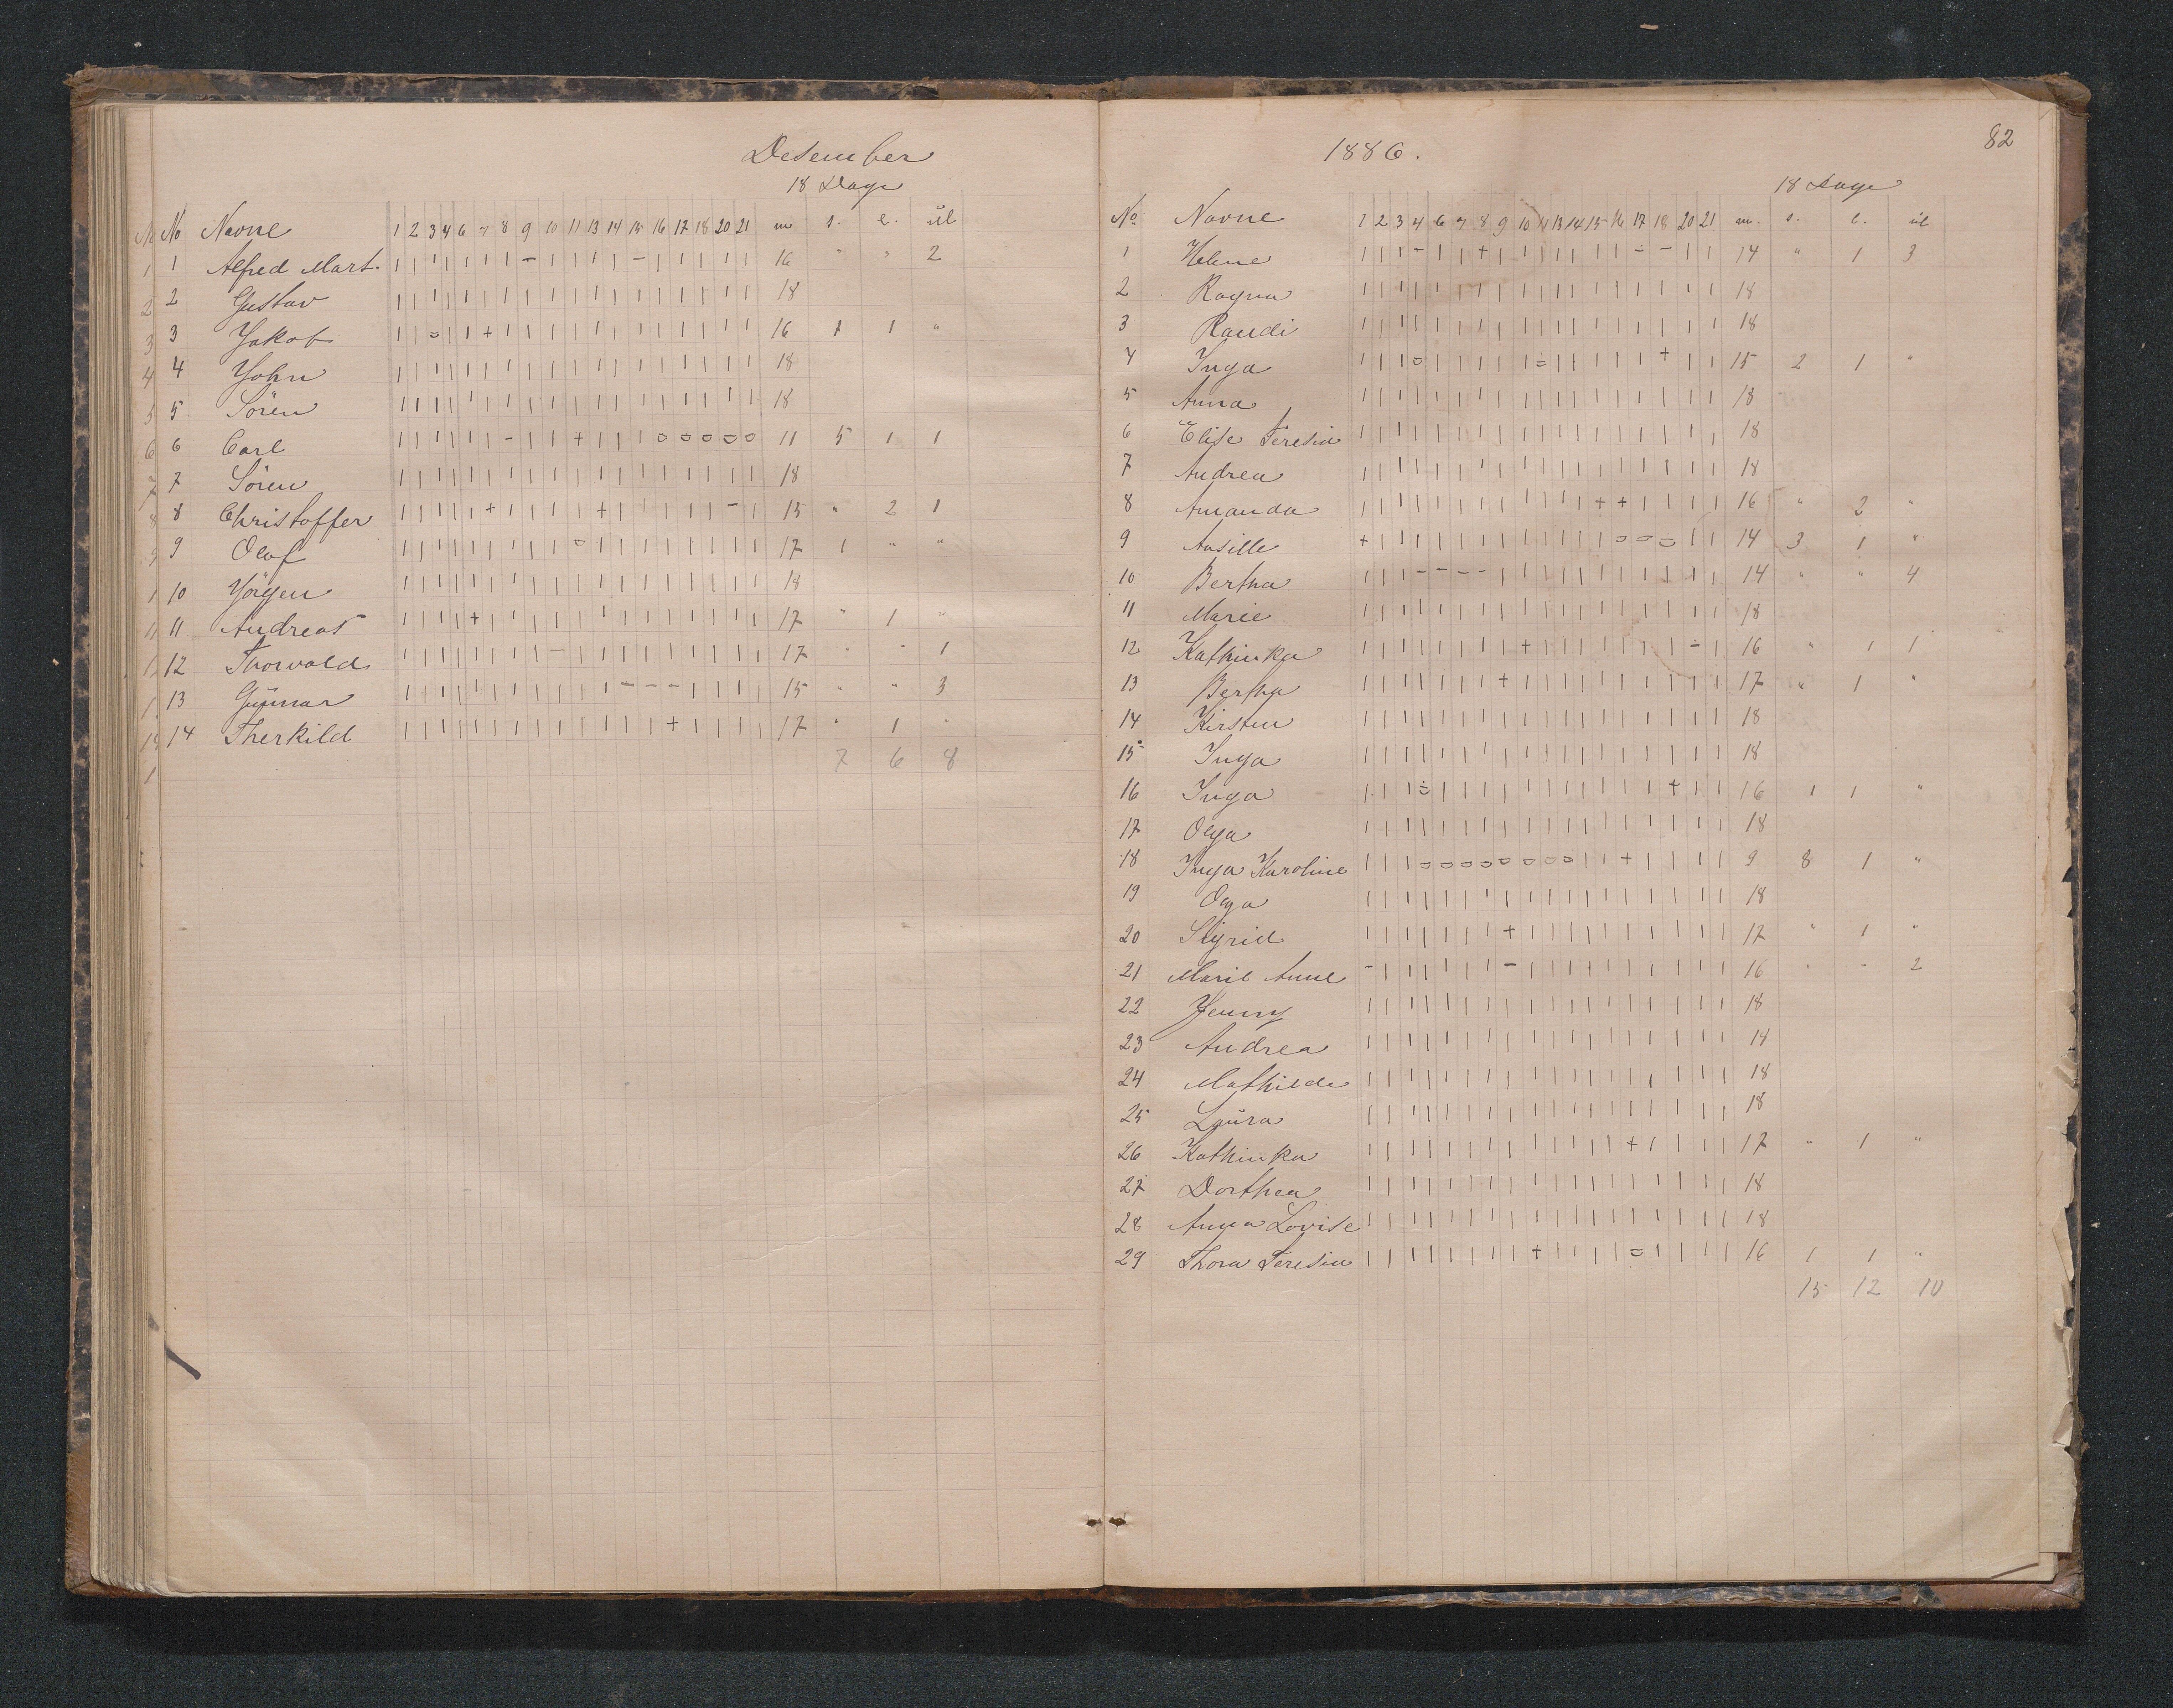 Desember
18 Dage
No Navne 1 2 3 4 6 7 8 9 10 11 13 14 15 16 17 18 20 21 m s. l. ul
1 Alfred Mart. | | | | | | | - | | | | - | | | | | | 16 " " 2
2 Gustav | | | | | | | | | | | | | | | | | | 18
3 Jakob | | o | | + | | | | | | | | | | | | 16 1 1 "
4 John | | | | | | | | | | | | | | | | | | 18
5 Sören | | | | | | | | | | | | | | | | | | 18
6 Carl | | | | | | - | | + | | | o o o o o 11 5 1 1
7 Sören | | | | | | | | | | | | | | | | | | 18
8 Christoffer | | | | | + | | | | + | | | | | - | 15 " 2 1
9 Olaf | | | | | | | | | o | | | | | | | | 17 1 " "
10 Jörgen | | | | | | | | | | | | | | | | | | 18
11 Andreas | | | | + | | | | | | | | | | | | | 17 " 1 "
12 Thorvald | | | | | | | | - | | | | | | | | | 17 " " 1
13 Gunnar | | | | | | | | | | | - - - | | | | 15 " " 3
14 Therkild | | | | | | | | | | | | | + | | | | 17 " 1 "
7 6 8
1886.
82
18 Dage
No Navne 1 2 3 4 6 7 8 9 10 11 13 14 15 16 17 18 20 21 m. s. l. ul
1 Helene | | | - | | + | | | | | | | - - | | 14 " 1 3
2 Ragna | | | | | | | | | | | | | | | | | | 18
3 Randi | | | | | | | | | | | | | | | | | | 18
4 Inga | | | o | | | | | o | | | | | + | | 15 2 1 "
5 Anna | | | | | | | | | | | | | | | | | | 18
6 Elise Teresia | | | | | | | | | | | | | | | | | | 18
7 Andrea | | | | | | | | | | | | | | | | | | 18
8 Amanda | | | | | | | | | | | | + + | | | | 16 " 2 "
9 + | | | | | | | | | | | | o o o | | 14 3 1 "
10 Bertha | | | - - - - | | | | | | | | | | | 14 " " 4
11 Marie | | | | | | | | | | | | | | | | | | 18
12 Kathinka | | | | | | | | + | | | | | | | - | 16 " 1 1
13 Bertha | | | | | | | + | | | | | | | | | | 17 " 1 "
14 Kirsten | | | | | | | | | | | | | | | | | | 18
15 Inga | | | | | | | | | | | | | | | | | | 18
16 Inga | | | o | | | | | | | | | | | + | | 16 1 1 "
17 Olga | | | | | | | | | | | | | | | | | | 18
18 Inga Karoline | | | o o o o o o o o | | + | | | | 9 8 1 "
19 Olga | | | | | | | | | | | | | | | | | | 18
20 Sigrid | | | | | | | + | | | | | | | | | | 17 " 1 "
21 Marie Anne - | | | | | | - | | | | | | | | | | 16 " " 2
22 Jenny | | | | | | | | | | | | | | | | | | 18
23 Andrea | | | | | | | | | | | | | | | | | | 14
24 Mathilde | | | | | | | | | | | | | | | | | | 18
25 Laura | | | | | | | | | | | | | | | | | | 18
26 Kathinka | | | | | | | | | | | | | + | | | | 17 " 1 "
27 Dorthea | | | | | | | | | | | | | | | | | | 18
28 Anna Lovise | | | | | | | | | | | | | | | | | | 18
29 Thora Teresia | | | | | | | | + | | | | o | | | | | 16 1 1 "
15 12 10